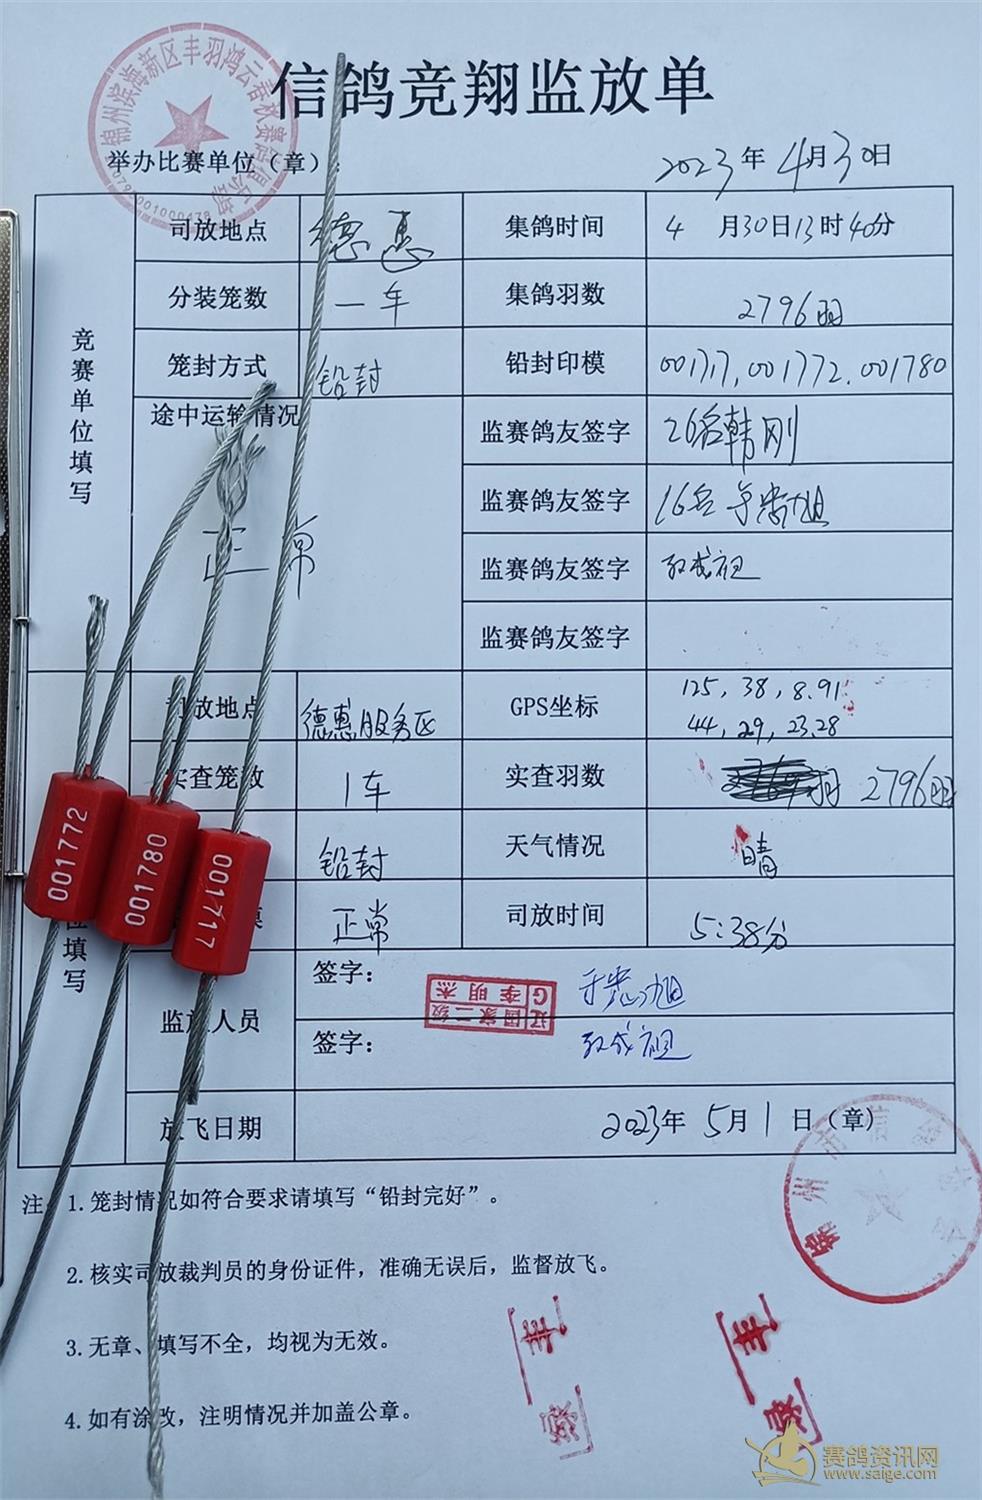 信鸽竞翔监放单
锦州滨海新区丰羽鸿云春秋赛鸽俱乐部
举办比赛单位（章）：
2023年4月30日
竞赛单位填写
司放地点 德惠 集鸽时间 4月30日13时40分
分装笼数 一车 集鸽羽数 2796羽
笼封方式 铅封 铅封印模 001717,001772,001780
途中运输情况 正常
监赛鸽友签字 26名韩刚
监赛鸽友签字 16名
监赛鸽友签字
监赛鸽友签字
司放地点 德惠服务区 GPS坐标 125,38,8.91
44,29,23.28
实查笼数 1车 实查羽数 2796羽
铅封 天气情况 晴
正常 司放时间 5:38分
位填写
监放人员 签字：
辽国家二级
G李明杰
签字：
放飞日期 2023年5月1日（章）
锦州市信鸽
001772
001780
001717
注：1.笼封情况如符合要求请填写“铅封完好”。
2.核实司放裁判员的身份证件，准确无误后，监督放飞。
3.无章、填写不全，均视为无效。
4.如有涂改，注明情况并加盖公章。
赛鸽资讯网
www.saige.com